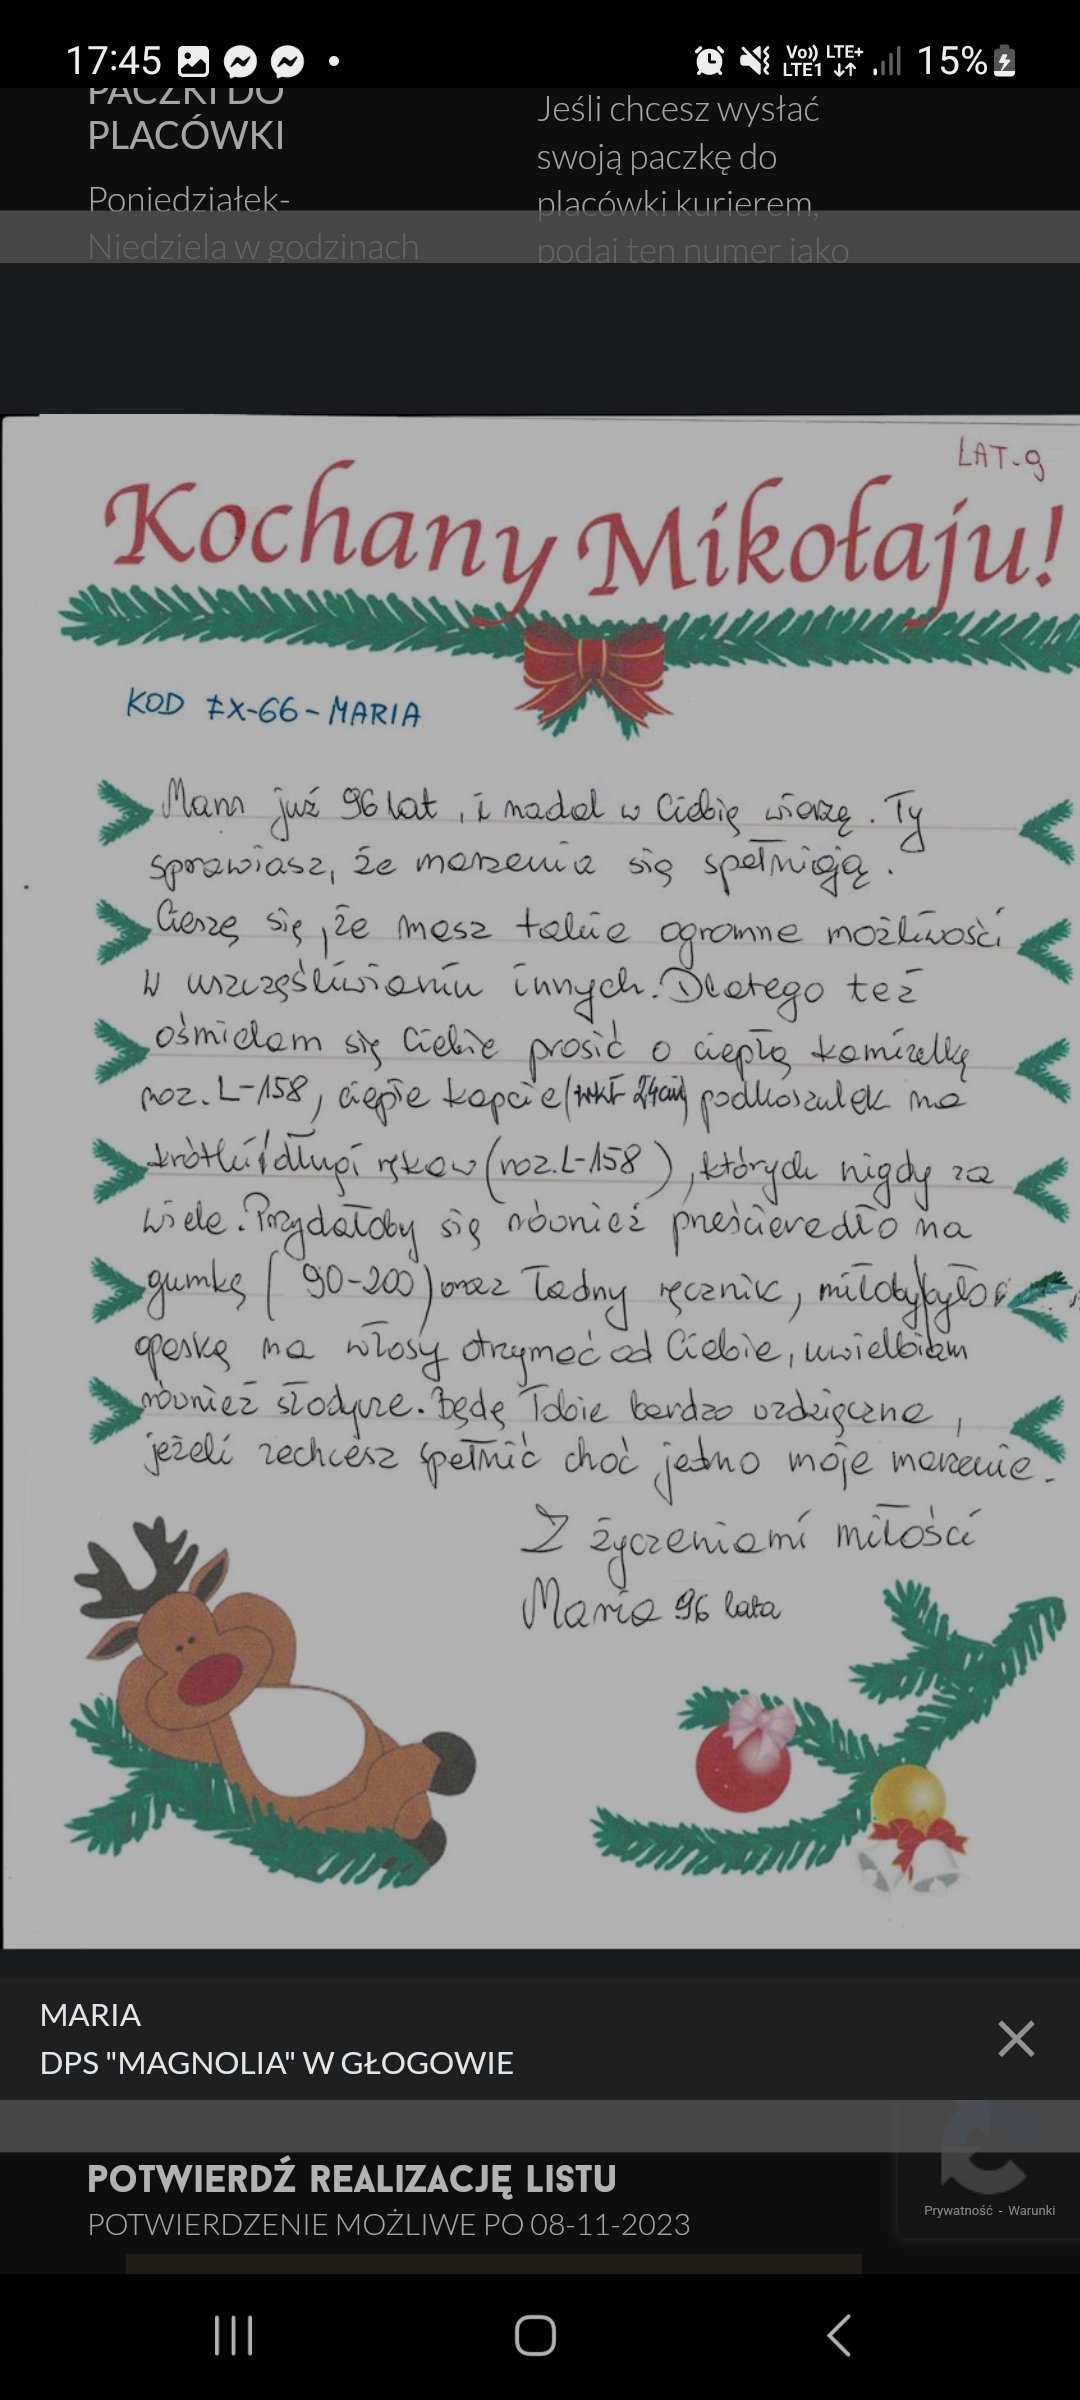 17:45
Vo)) LTE+
LTE1
15%
PACZKI DO
PLACÓWKI
Poniedziałek-
Niedziela w godzinach
Jeśli chcesz wysłać
swoją paczkę do
placówki kurierem,
podaj ten numer jako
LAT-9
Kochany Mikołaju!
KOD ŁX-66-MARIA
Mam już 96 lat, i nadal w Ciebię wierzę. Ty
sprawiasz, że marzenia się spełniają.
Cieszę się, że masz takie ogromne możliwości
w uszczęśliwianiu innych. Dlatego też
ośmielam się Ciebie prosić o ciepłą kamizelkę
roz. L-158, ciepłe kapcie (wkł 24cm) podkoszulek na
krótki i długi rękaw (roz. L-158), których nigdy za
wiele. Przydałoby się również prześcieradło na
gumkę (90-200) oraz ładny ręcznik, miłoby było
opaskę na włosy otrzymać od Ciebie, uwielbiam
również słodycze. Będę Tobie bardzo wdzięczna,
jeżeli zechcesz spełnić choć jedno moje marzenie.
Z życzeniami miłości
Maria 96 lata
MARIA
DPS "MAGNOLIA" W GŁOGOWIE
POTWIERDŹ REALIZACJĘ LISTU
POTWIERDZENIE MOŻLIWE PO 08-11-2023
Prywatność - Warunki